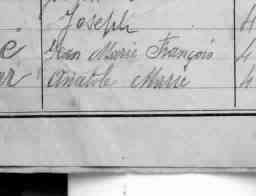 Joseph 4
Jean Marie François 4
Anatole Marie 4